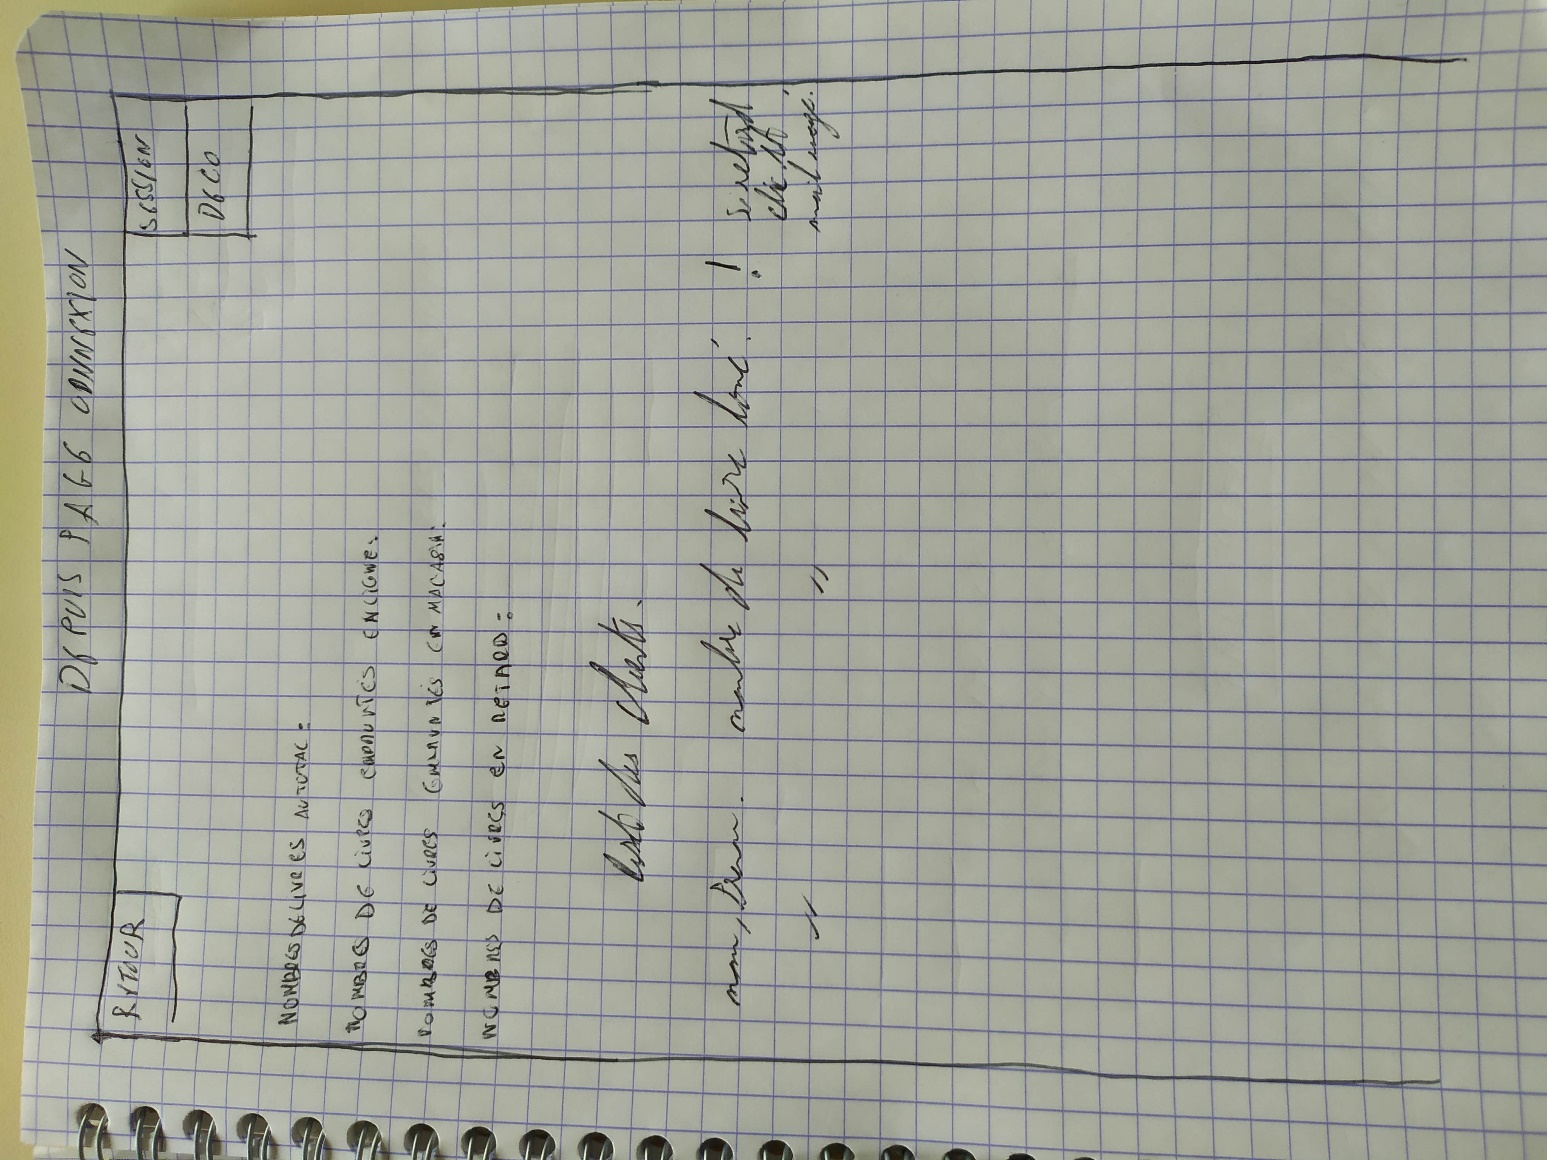 DEPUIS PAGE CONNEXION
RETOUR
SESSION
DECO
NOMBRES DE LIVRES AU TOTAL :
NOMBRES DE LIVRES EMPRUNTES EN LIGNE :
NOMBRES DE LIVRES EMPRUNTÉS EN MAGASIN :
NOMBRES DE LIVRES EN RETARD :
liste des clients.
nom, prénom. nombre de livre loué. ! Si retard
"
"
mail rouge.